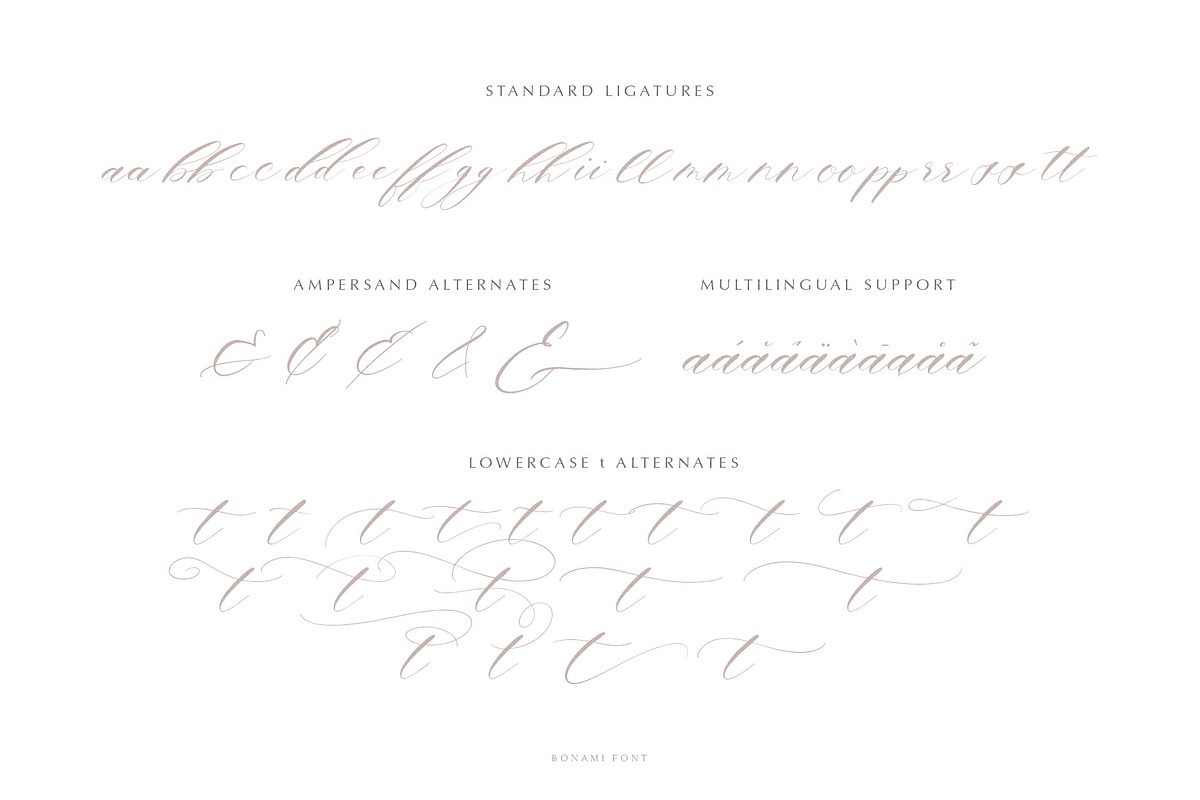 STANDARD LIGATURES
aa bb cc dd ee ff gg hh ii ll mm nn oo pp rr ss tt
AMPERSAND ALTERNATES
MULTILINGUAL SUPPORT
& & & & &
aáăâäàāąåã
LOWERCASE t ALTERNATES
t t t t t t t t t t
t t t t t
t t t t
BONAMI FONT